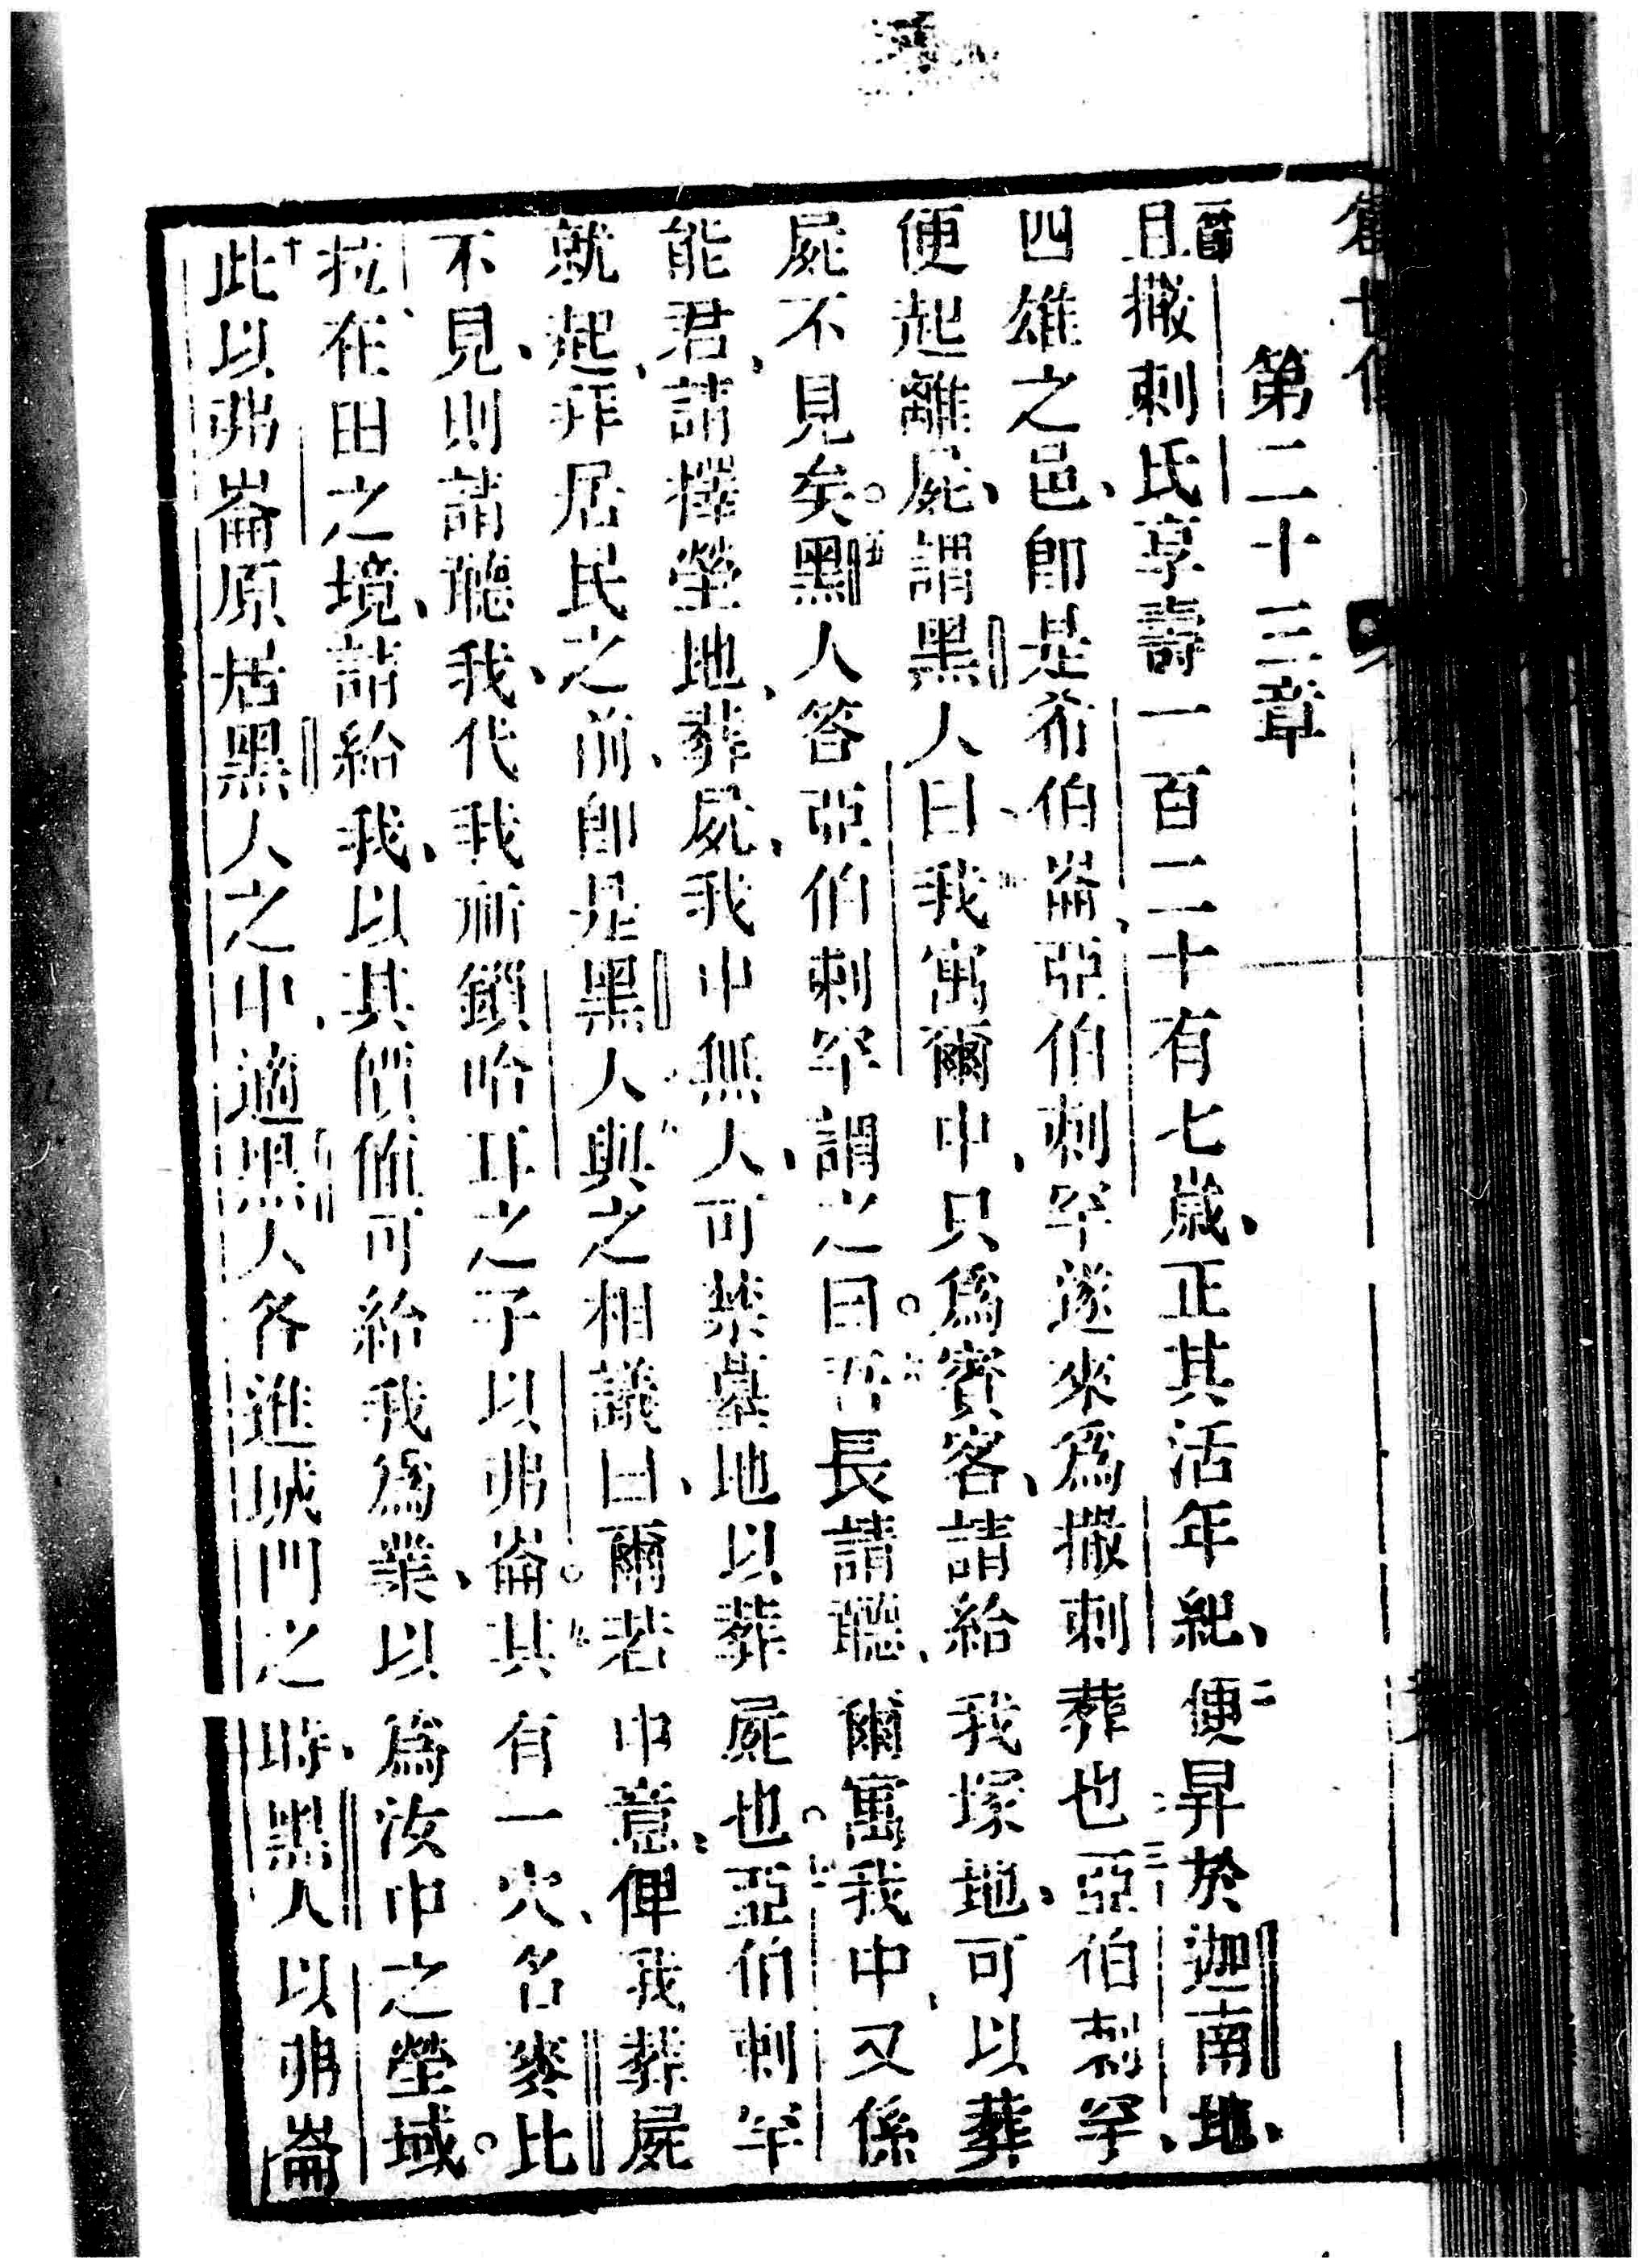 第二十三章
一節且撒剌氏享壽一百二十有七歲、正其活年紀、二便昇於迦南地、
四雄之邑、卽是希伯崙、亞伯剌罕遂來爲撒剌葬也三亞伯剌罕、
便起離屍、謂黑人曰、四我寓爾中、只爲賓客、請給我塚地、可以葬
屍不見矣。五黑人答亞伯剌罕謂之曰。六吾長請聽、爾寓我中、又係
能君、請擇塋地、葬屍、我中無人、可禁墓地以葬屍也。七亞伯剌罕
就起、拜居民之前、卽是黑人、八與之相議曰、爾若中意、俾我葬屍
不見、則請聽我、代我祈鎖哈耳之子以弗崙。九其有一穴、名麥比
拉、在田之境、請給我、以其價値可給我爲業、以爲汝中之塋域。
十此以弗崙原居黑人之中、適黑人各進城門之時、黑人以弗崙